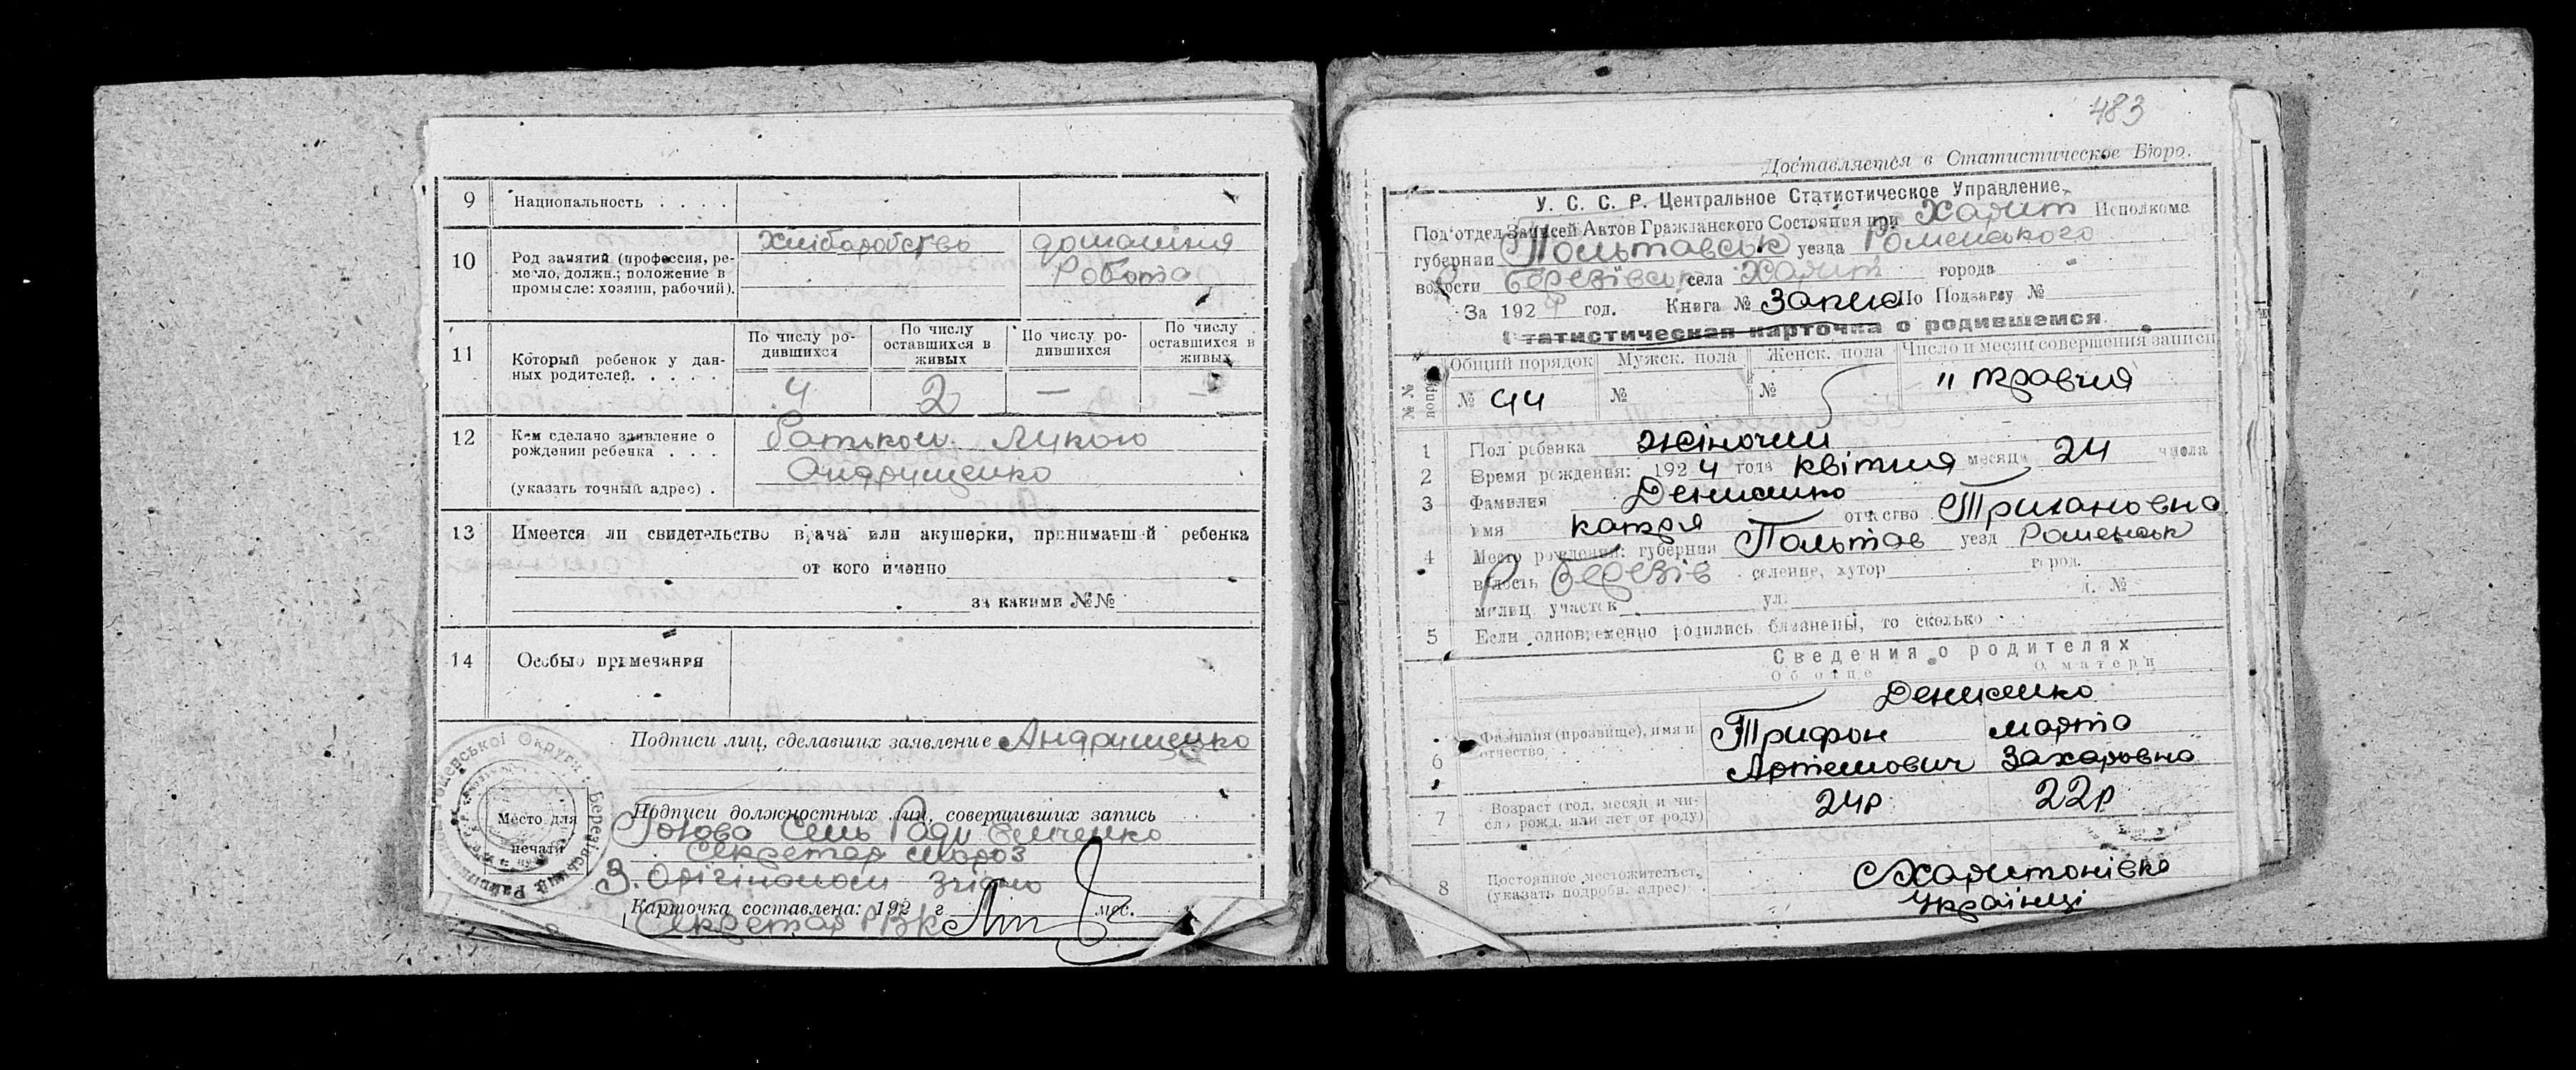 9 Национальность . . . .
10 Род занятий (профессия, ре-
месло, должн.; положение в
промысле: хозяин, рабочий).
Хліборобство
домашня
Робота
11 Который ребенок у дан-
ных родителей. . . . .
По числу ро-
дившихся
По числу
оставшихся в
живых
По числу ро-
дившихся
По числу
оставшихся в
живых
4 2 — —
12 Кем сделано заявление о
рождении ребенка . . .
(указать точный адрес) .
Батьком Лукою
Андрущенко
13 Имеется ли свидетельство врача или акушерки, принимавшей ребенка
от кого именно
за какими №№
14 Особые примечания
Подписи лиц, сделавших заявление Андрущенко
Подписи должностных лиц, совершивших запись
Голова Сель Ради
Секретар Мороз
З. Орігіналом Згідно
Карточка составлена: 192 г. мес.
Секретар РВК
Место для
печати
483
Доставляется в Статистическое Бюро.
У. С. С. Р. Центральное Статистическое Управление.
Подотдел Записей Актов Гражданского Состояния при Харит Исполкоме
губернии Полтавськ уезда Роменського
волости Березівськ села Харит города
За 1924 год. Книга № Запис По Подзагсу №
Статистическая карточка о родившемся
№№ попор.
Общий порядок Мужск. пола Женск. пола Число и месяц совершения записи
№ 44 № № " травня
1 Пол ребенка жіночий
2 Время рождения: 1924 года квітня месяца 24 числа
3 Фамилия Денисенко
имя катря отчество Трихоновна
4 Место рождения: губернии Полтав уезд Роменськ
волость Березів селение, хутор город.
милиц. участок ул. д. №
5 Если одновременно родились близнецы, то сколько
Сведения о родителях
Об отце О матери
6 Фамилия (прозвище), имя и
отчество
Денисенко
Трифон марта
Артемович Захаровна
7 Возраст (год, месяц и чи-
сло рожд. или лет от роду)
24р 22р
8 Постоянное местожительст.
(указать подробн. адрес)
с Харитонівка
Українці